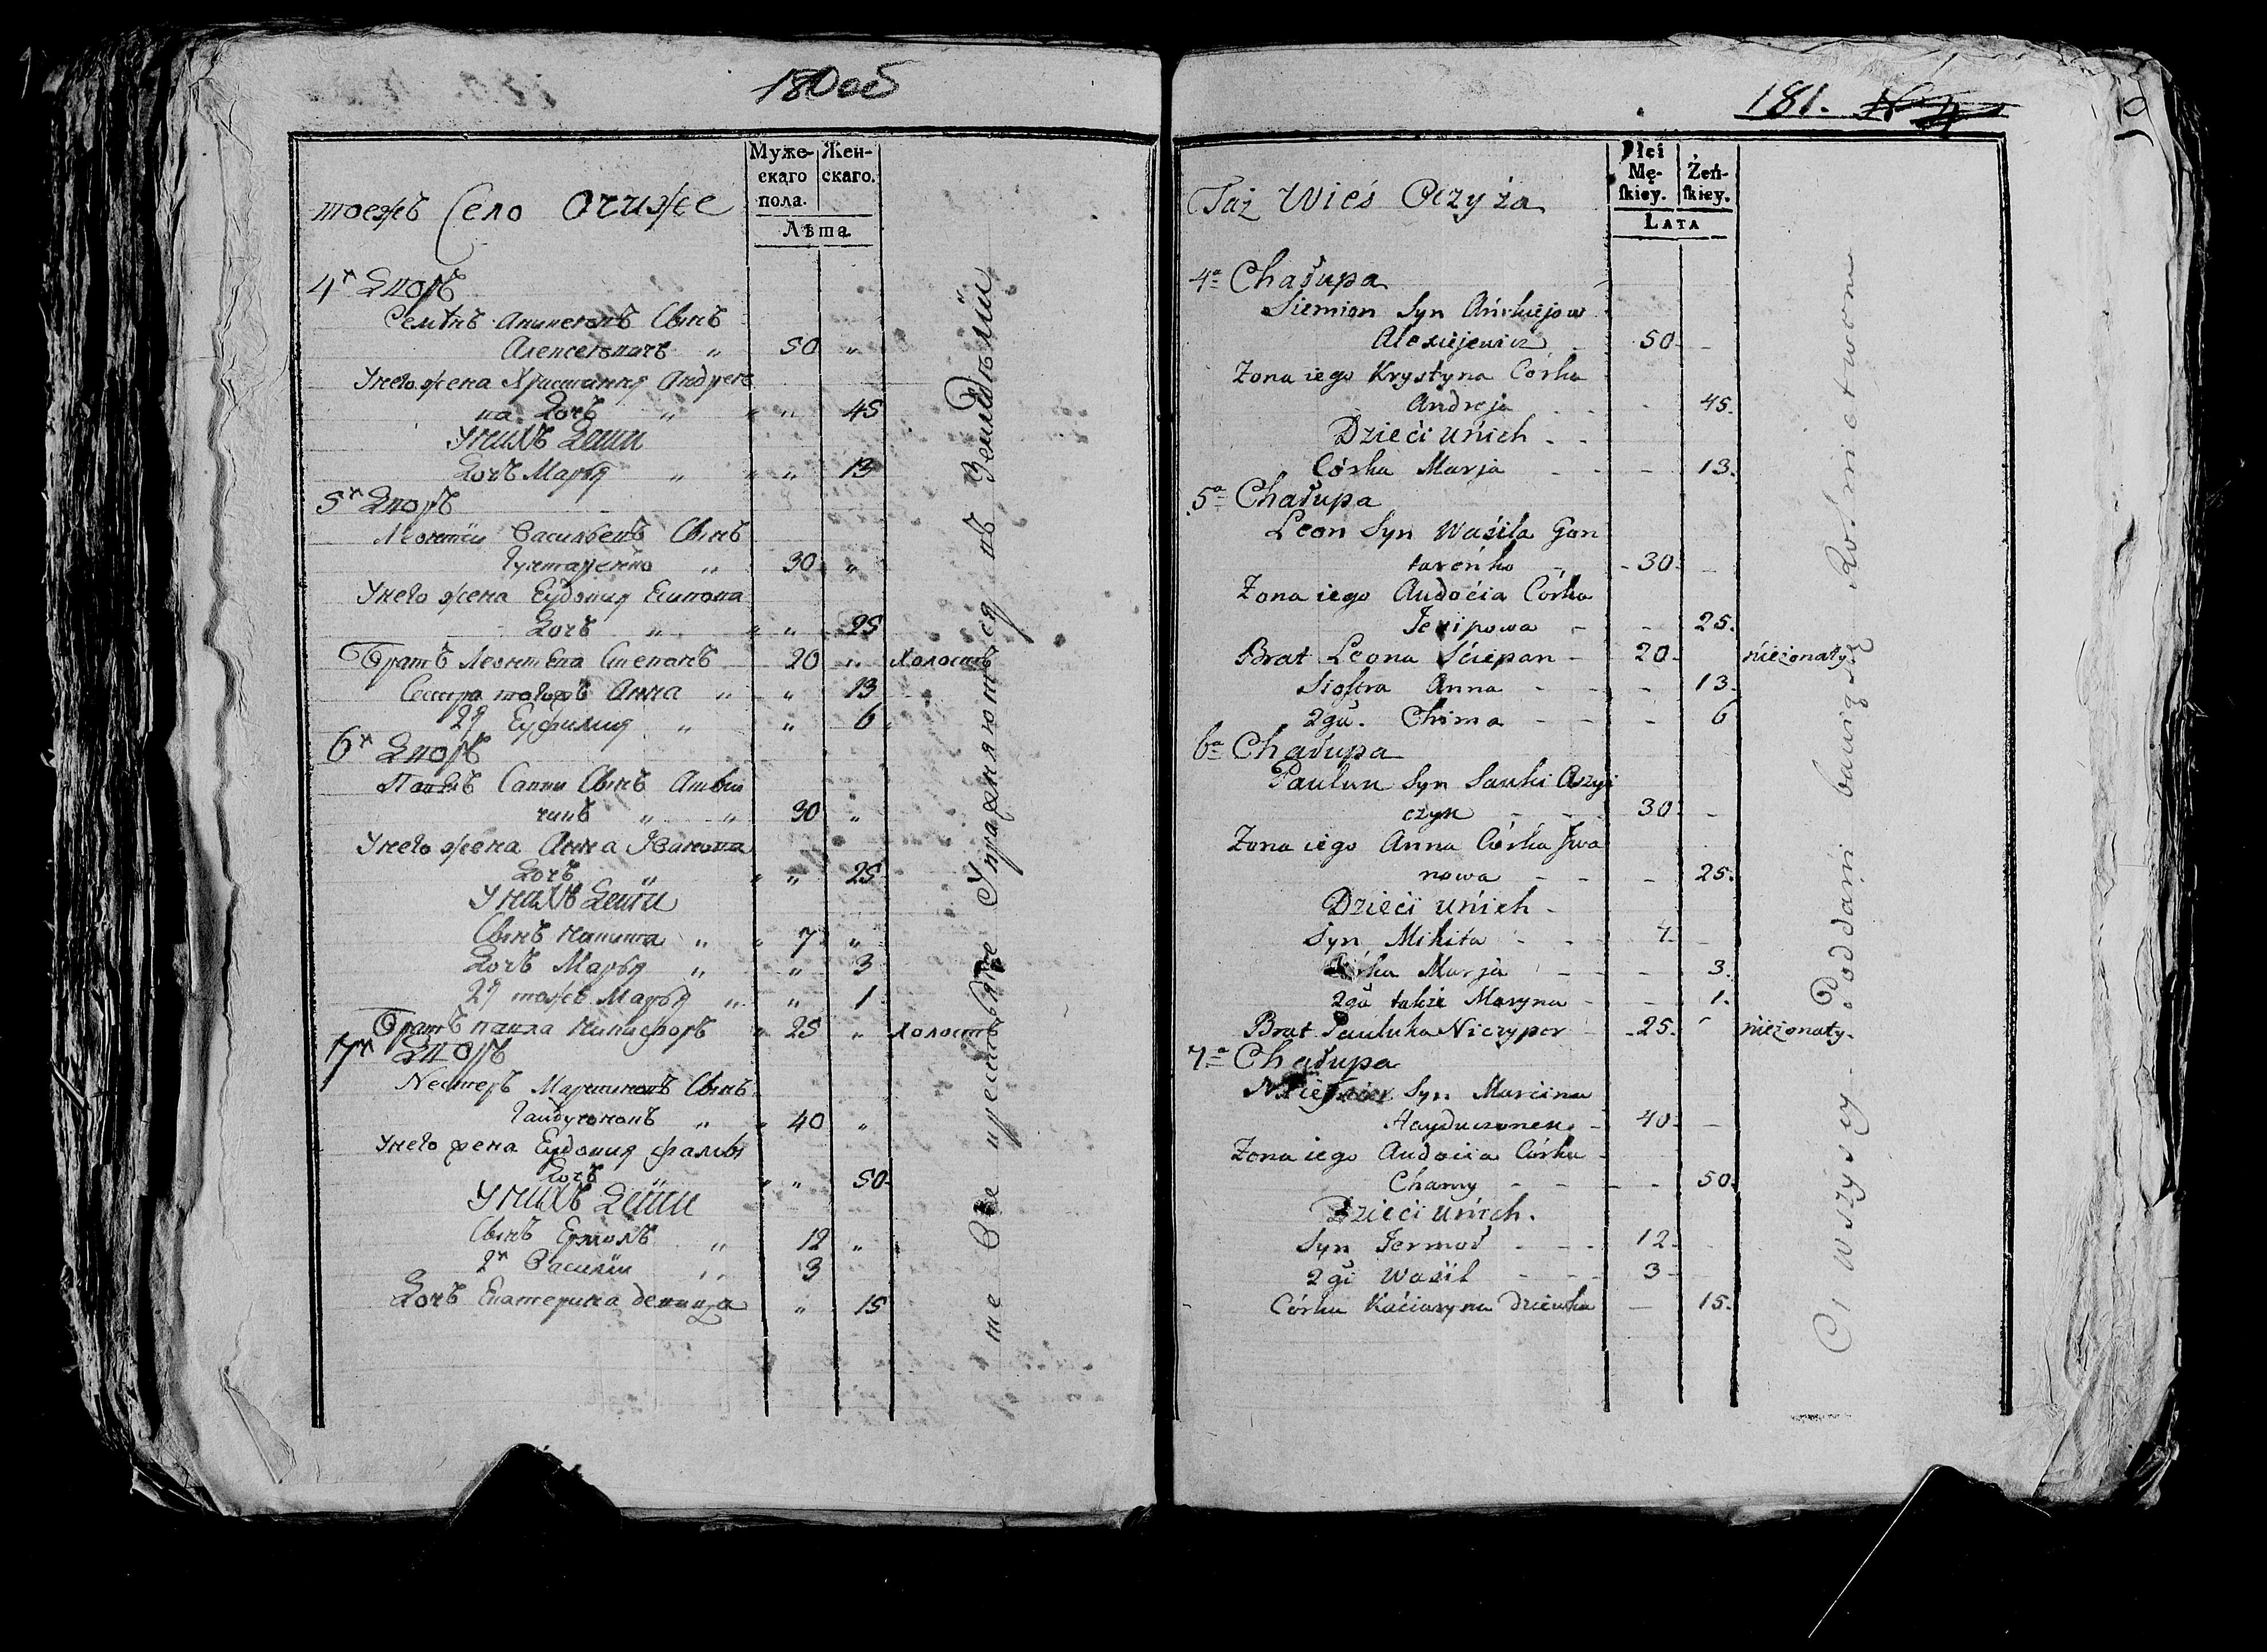 180 об
Муже-
скаго
пола.
Жен-
скаго.
Лѣта
тоежъ Село Очиже
4й Дворъ
Семѣнъ Сынъ
50 „
Унего жена Христинія Андрее
ва Дочь „ „ „ 45
Унихъ Дети
Дочь Марья „ „ „ 13
5й Дворъ
Леонтеи Васильевъ Сынъ
30 „
Унего жена Еудокия Есипова
Дочь „ „ „ 25
Братъ Леонтева Степанъ 20 „ Холостъ
Сестра Анна „ „ 13
2я Еуфимия „ „ 6
6й Дворъ
Павелъ Савки Сынъ
чикъ „ „ 30 „
Унего жена Анна Иванова
Дочь „ „ „ 25
Унихъ Дети
Сынъ Никита „ „ 7 „
Дочь Марья „ „ 3
2я тожъ Марья „ „ 1
Братъ павла Никифоръ „ 25 „ Холостъ
7й Дворъ
Нестеръ Мартиновъ Сынъ
Гайдученокъ „ „ 40 „
Унего жена Еудокия
Дочь „ „ 50
Унихъ Дети
Сынъ Ермолъ „ 12 „
2й Василіи „ 3
Дочь Екатерина девица „ 15
те Все крестьяне Упражняются въ Земледѣліи
181.
Płci
Mę-
skiey.
Żeń-
skiey.
LATA
Taż Wieś Oczyża
4a Chałupa
Siemion Syn
Alexiejewicz 50 -
Żona iego Krystyna Córka
Andreja - 45.
Dzieci unich - -
Córka Marja - - - 13.
5a Chałupa
Leon Syn Wasila Gon
tareńko - 30 -
Żona iego Audocia Córka
Jesipowa - - 25.
Brat Leona Sciepan - 20 - nieżonaty
Siostra Anna - - - 13.
2ga. Chima - - - 6
6a Chałupa
Paulun Syn Sauki
czyk - - - 30 -
Żona iego Anna Córka Iwa
nowa - - - 25.
Dzieci unich -
Syn Mikita - - 7. -
Córka Marja - - - 3.
2ga także Maryna - - 1.
Brat Pauluka Niczypor - 25. - nieżonaty.
7a Chałupa
Syn Marcina
Hayduczonek - 40 -
Żona iego Audocia Córka -
Chamy - - - - 50.
Dzieci unich.
Syn Jermoł - - - 12 -
2gi Wasil - - - 3 -
Córka Kaciaryna Dziewka - 15.
Ci wszyscy Poddani bawią się Rolnictwem